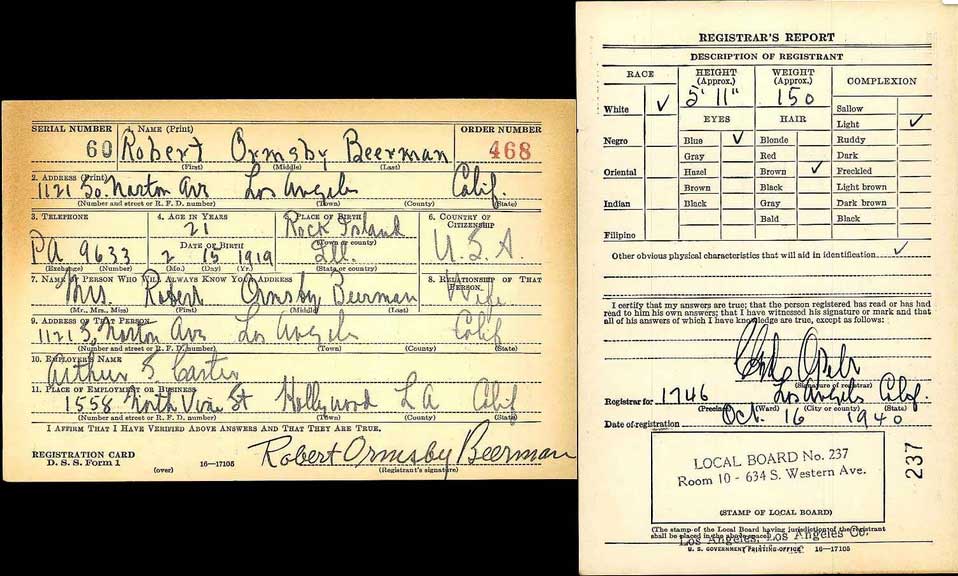 SERIAL NUMBER 1. NAME (Print) ORDER NUMBER
60 Robert Ormsby Beerman 468
(First) (Middle) (Last)
2. ADDRESS (Print)
1121 So. Norton Av Los Angeles Calif.
(Number and street or R. F. D. number) (Town) (County) (State)
3. TELEPHONE 4. AGE IN YEARS 5. PLACE OF BIRTH 6. COUNTRY OF CITIZENSHIP
21 Rock Island
DATE OF BIRTH (Town or county)
PA 9633 2 15 1919 Ill. U.S.A.
(Exchange) (Number) (Mo.) (Day) (Yr.) (State or country)
7. NAME OF PERSON WHO WILL ALWAYS KNOW YOUR ADDRESS 8. RELATIONSHIP OF THAT PERSON
Mrs. Robert Ormsby Beerman Wife
(Mr., Mrs., Miss) (First) (Middle) (Last)
9. ADDRESS OF THAT PERSON
1121 S. Norton Av Los Angeles Calif
(Number and street or R. F. D. number) (Town) (County) (State)
10. EMPLOYER'S NAME
Arthur S. Carter
11. PLACE OF EMPLOYMENT OR BUSINESS
1558 North Vine St Hollywood LA Calif
(Number and street or R. F. D. number) (Town) (County) (State)
I AFFIRM THAT I HAVE VERIFIED ABOVE ANSWERS AND THAT THEY ARE TRUE.
REGISTRATION CARD
D. S. S. Form 1 (over) 16—17105
Robert Ormsby Beerman
(Registrant's signature)
REGISTRAR'S REPORT
DESCRIPTION OF REGISTRANT
RACE HEIGHT (Approx.) WEIGHT (Approx.) COMPLEXION
White ✓ 5' 11" 150 Sallow
EYES HAIR Light ✓
Negro Blue ✓ Blonde Ruddy
Gray Red Dark
Oriental Hazel Brown ✓ Freckled
Brown Black Light brown
Indian Black Gray Dark brown
Bald Black
Filipino
Other obvious physical characteristics that will aid in identification ✓
I certify that my answers are true; that the person registered has read or has had
read to him his own answers; that I have witnessed his signature or mark and that
all of his answers of which I have knowledge are true, except as follows:
(Signature of registrar)
Registrar for 1746 Los Angeles Calif.
(Precinct) (Ward) (City or county) (State)
Date of registration Oct. 16 1940
LOCAL BOARD No. 237
Room 10 - 634 S. Western Ave.
237
(STAMP OF LOCAL BOARD)
(The stamp of the Local Board having jurisdiction of the registrant
shall be placed in the above space)
Los Angeles, Los Angeles Co.
U. S. GOVERNMENT PRINTING OFFICE 16—17105